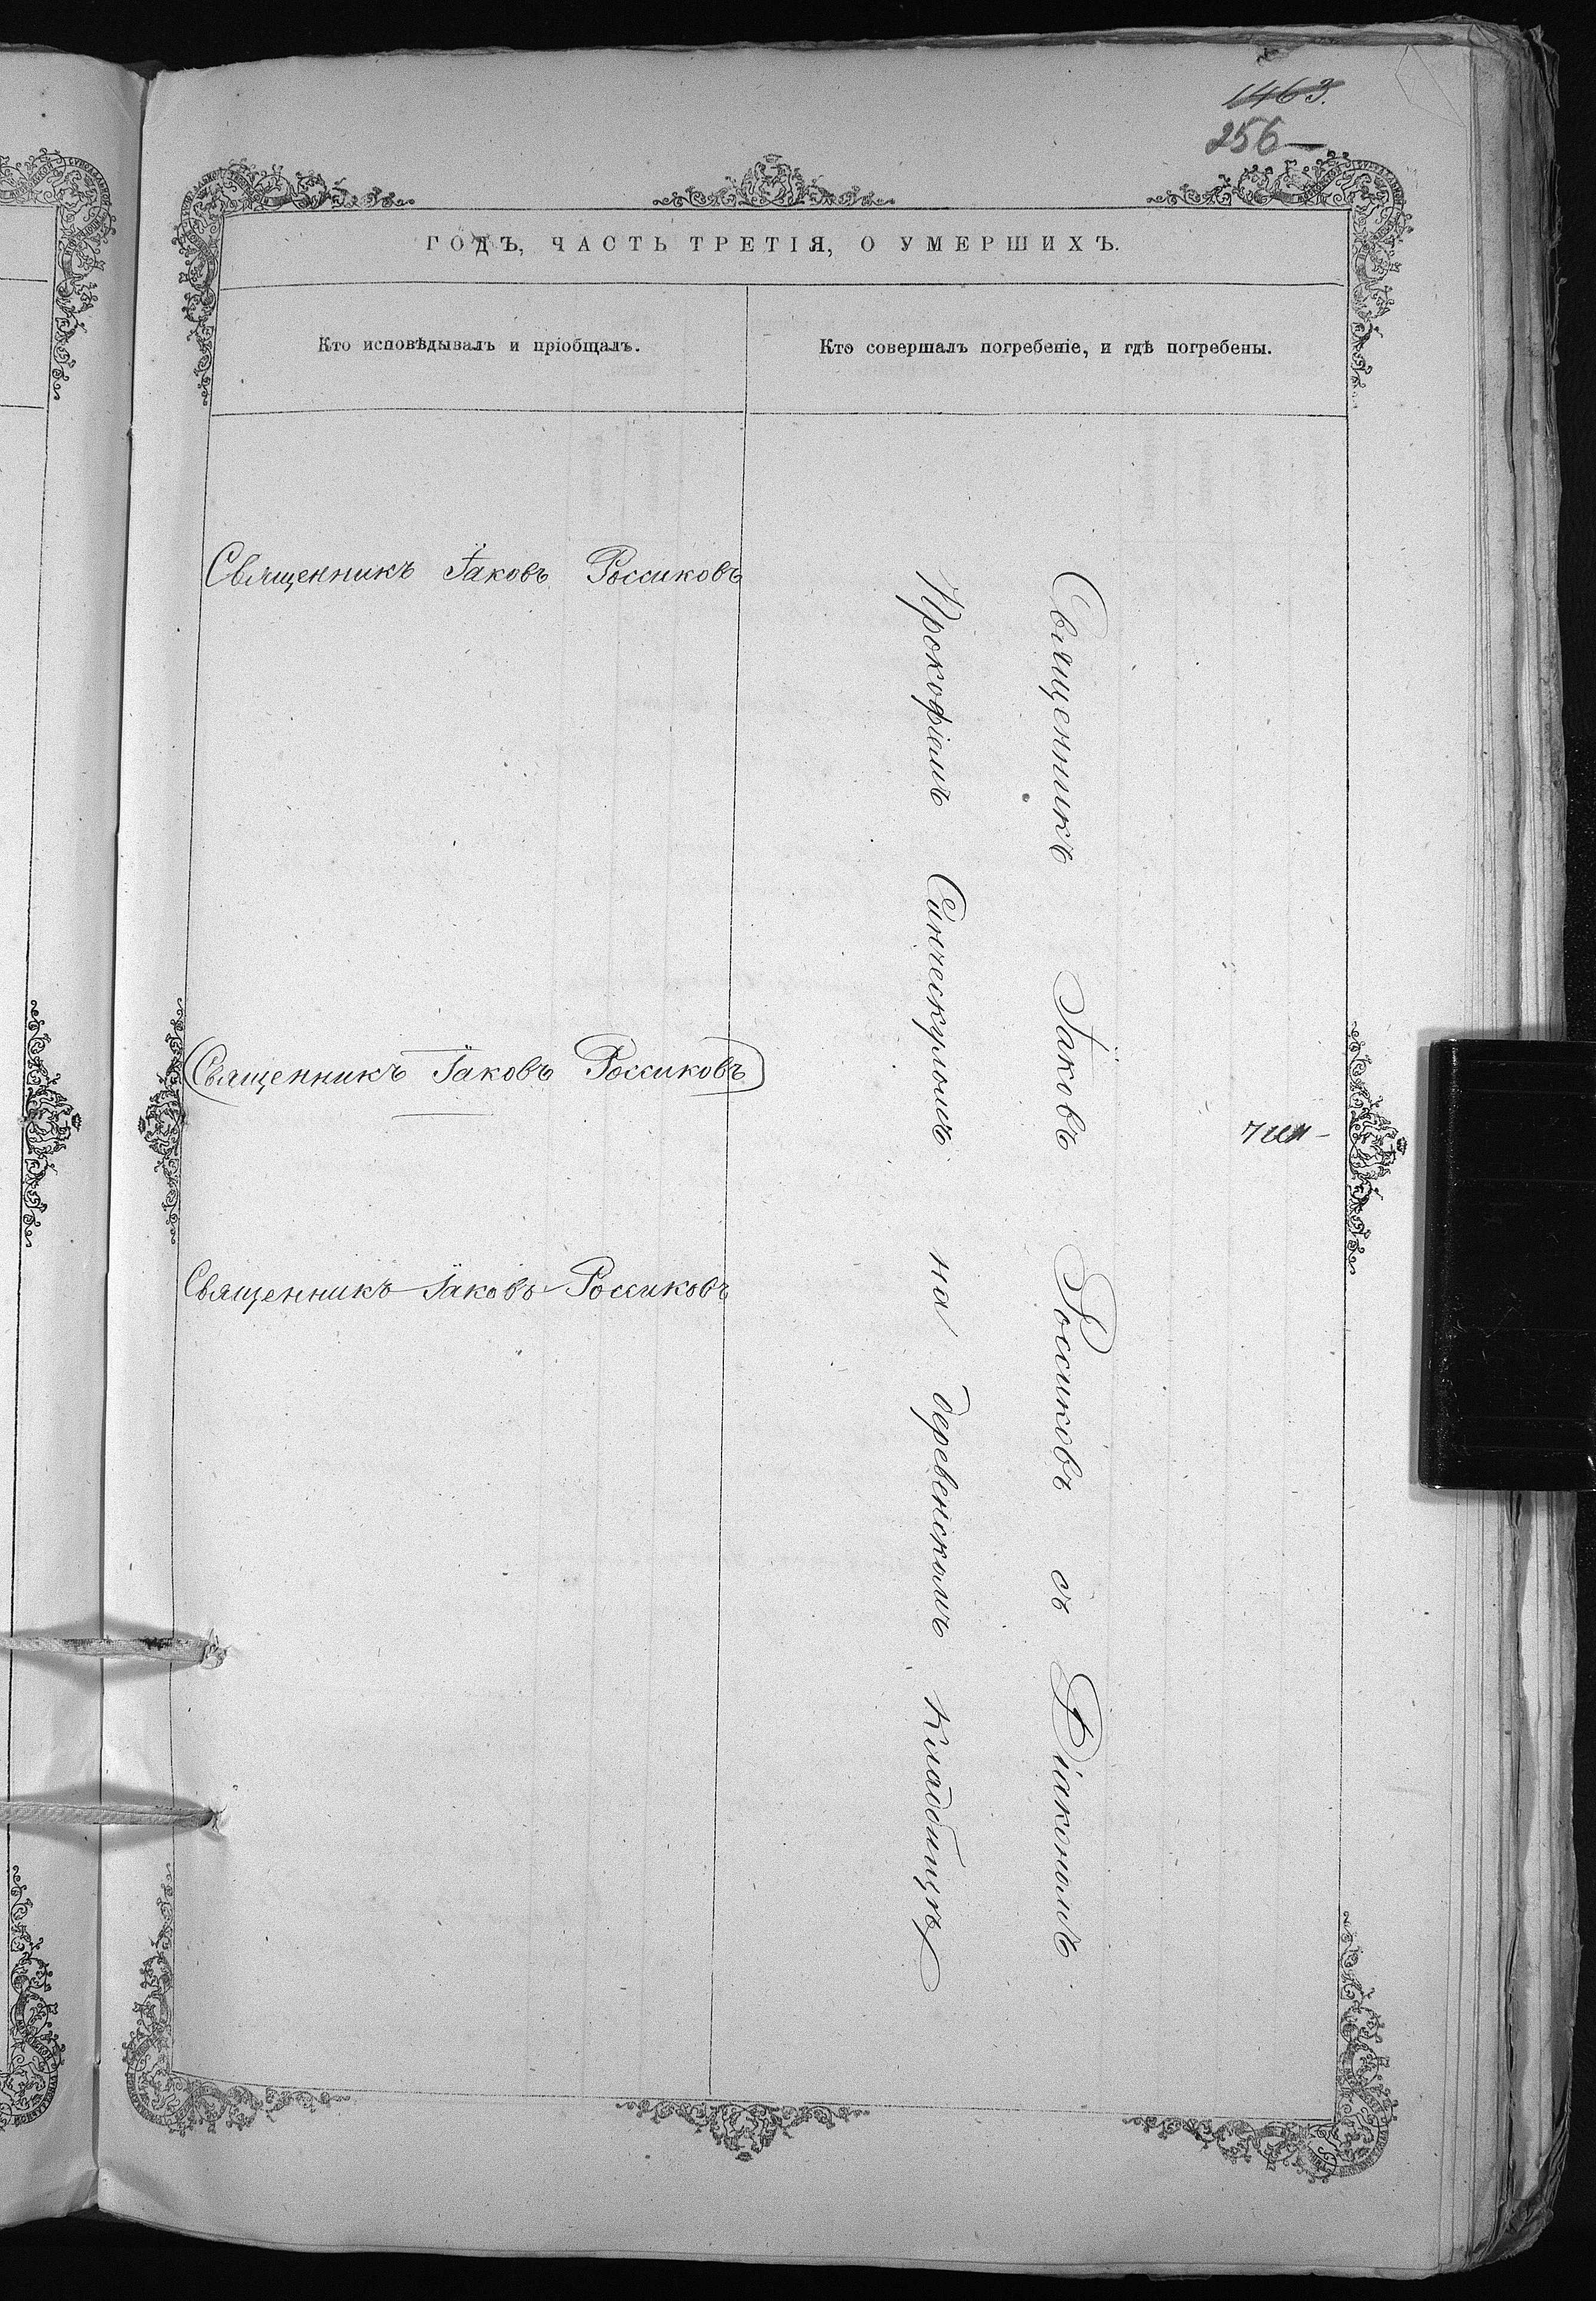 1463.
256
ГОДЪ, ЧАСТЬ ТРЕТІЯ, О УМЕРШИХЪ.
Кто исповѣдывалъ и пріобщалъ.
Кто совершалъ погребеніе, и гдѣ погребены.
Священникъ Іаковъ Россиковъ
Священникъ Іаковъ Россиковъ
Священникъ Іаковъ Россиковъ
Священникъ Іаковъ Россиковъ съ Діакономъ
Прокофіемъ на деревенскомъ кладбищѣ